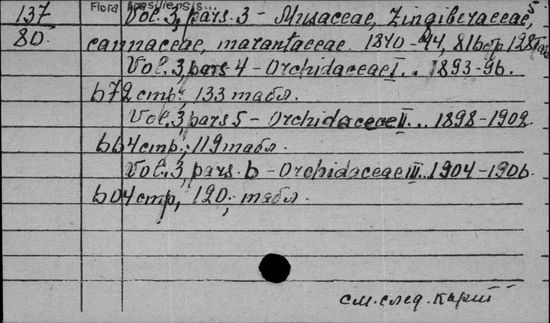 Flora Brasiliensis...
137 Vol. 3, pars. 3 - Musaceae, Zingiberaceae,
80. cannaceae, marantaceae. 1890-94, 816 стр. 128 табл
Vol. 3, pars 4 - Orchidaceae I.. 1893-96.
672 стр; 133 табл.
Vol. 3, pars 5 - Orchidaceae II... 1898-1902
664 стр; 119 табл.
Vol. 3, pars. 6 - Orchidaceae III.. 1904-1906.
604 стр, 120, табл.
см. след. карт